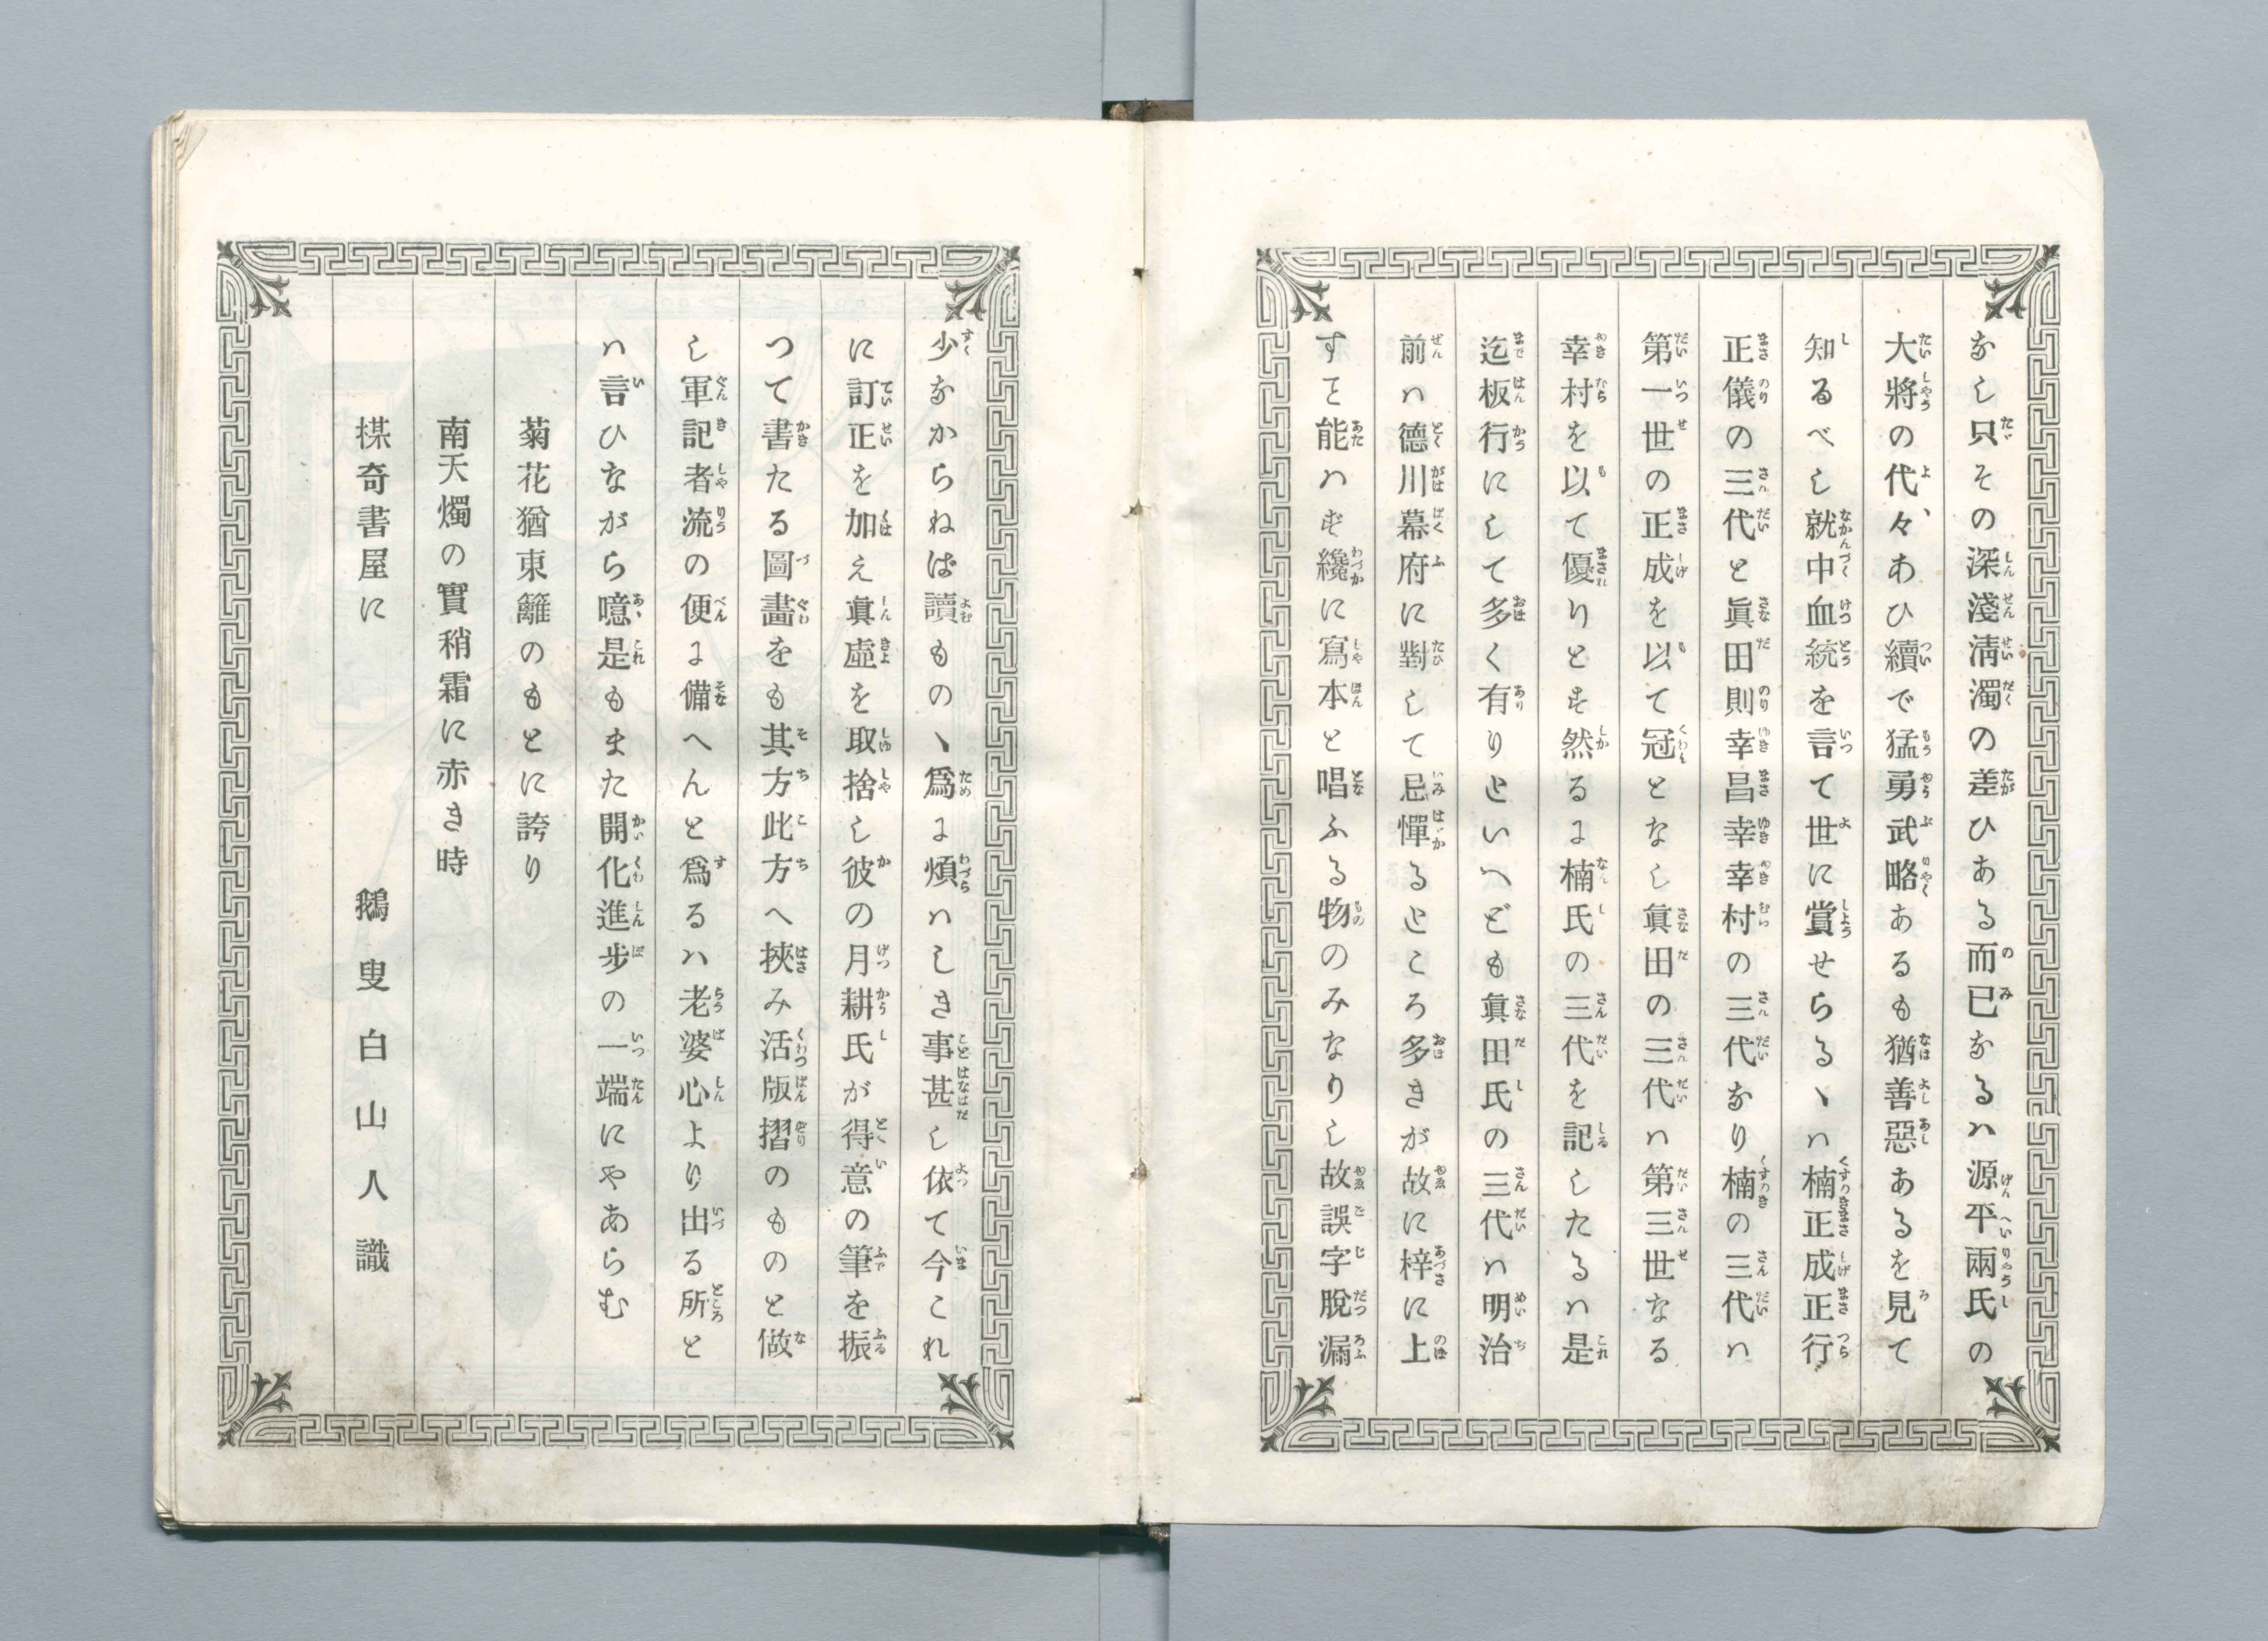 なし只その深淺淸濁の差ひある而已なるハ源平兩氏の
大將の代々あひ續で猛勇武略あるも猶善惡あるを見て
知るべし就中血統を言て世に賞せらるゝハ楠正成正行
正儀の三代と眞田則幸昌幸幸村の三代なり楠の三代ハ
第一世の正成を以て冠となし眞田の三代ハ第三世なる
幸村を以て優りとす然るに楠氏の三代を記したるハ是
迄板行にして多く有りといへども眞田氏の三代ハ明治
前ハ德川幕府に對して忌憚るところ多きが故に梓に上
すこと能ハず纔に寫本と唱ふる物のみなりし故誤字脫漏
少なからねば讀ものゝ爲に煩ハしき事甚し依て今これ
に訂正を加え眞虛を取捨し彼の月耕氏が得意の筆を振
つて書たる圖畫をも其方此方へ挾み活版摺のものと做
し軍記者流の便に備へんと爲るハ老婆心より出る所と
ハ言ひながら噫是もまた開化進步の一端にやあらむ
菊花猶東籬のもとに誇り
南天燭の實稍霜に赤き時
楳奇書屋に
鵝叟白山人識